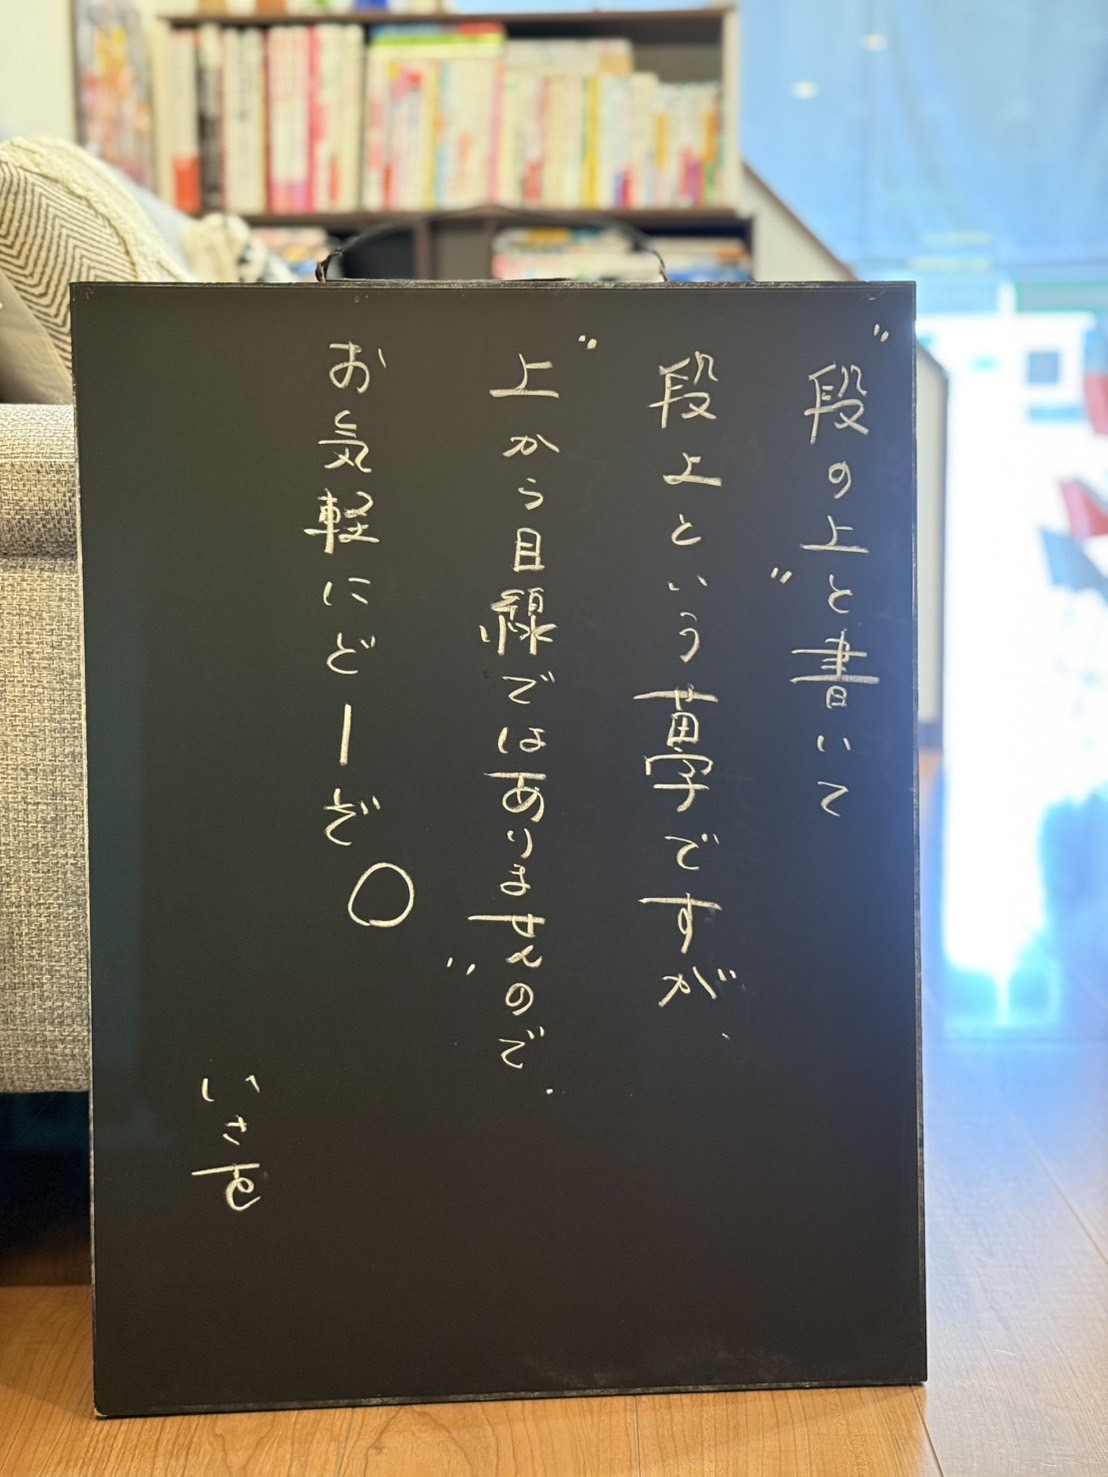 "段の上"と書いて
段上という苗字ですが、
"上から目線ではありません"ので、
お気軽にどーぞ○
いさを